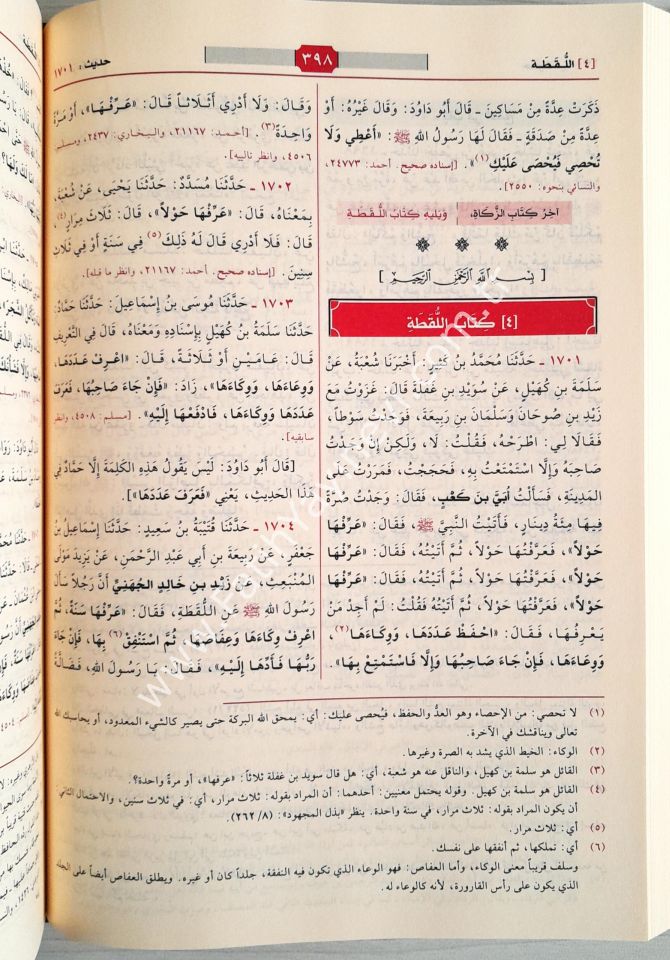 [٤] اللُّقَطَة
٣٩٨
حديث: ١٧٠١
ذَكَرَتْ عِدَّةً مِنْ مَسَاكِينَ - قَالَ أَبُو دَاوُدَ: وَقَالَ غَيْرُهُ: أَوْ
عِدَّةً مِنْ صَدَقَةٍ - فَقَالَ لَهَا رَسُولُ اللهِ ﷺ: «أَعْطِي وَلَا
تُحْصِي فَيُحْصَى عَلَيْكِ(١)». [إسناده صحيح. أحمد: ٢٤٧٧٣،
والنسائي بنحوه: ٢٥٥٠].
آخِرُ كِتَابِ الزَّكَاةِ، وَيَلِيهِ كِتَابُ اللُّقَطَةِ
[ بِسْمِ اللهِ الرَّحْمَنِ الرَّحِيمِ ]
[٤] كِتَابُ اللُّقَطَةِ
١٧٠١ - حَدَّثَنَا مُحَمَّدُ بنُ كَثِيرٍ: أَخْبَرَنَا شُعْبَةُ، عَنْ
سَلَمَةَ بنِ كُهَيْلٍ، عَنْ سُوَيْدِ بنِ غَفَلَةَ قَالَ: غَزَوْتُ مَعَ
زَيْدِ بنِ صُوحَانَ وَسَلْمَانَ بنِ رَبِيعَةَ، فَوَجَدْتُ سَوْطاً،
فَقَالَا لِي: اطْرَحْهُ، فَقُلْتُ: لَا، وَلَكِنْ إِنْ وَجَدْتُ
صَاحِبَهُ وَإِلَّا اسْتَمْتَعْتُ بِهِ، فَحَجَجْتُ، فَمَرَرْتُ عَلَى
المَدِينَةِ، فَسَأَلْتُ أُبَيَّ بنَ كَعْبٍ، فَقَالَ: وَجَدْتُ صُرَّةً
فِيهَا مِئَةُ دِينَارٍ، فَأَتَيْتُ النَّبِيَّ ﷺ، فَقَالَ: «عَرِّفْهَا
حَوْلاً»، فَعَرَّفْتُهَا حَوْلاً، ثُمَّ أَتَيْتُهُ، فَقَالَ: «عَرِّفْهَا
حَوْلاً»، فَعَرَّفْتُهَا حَوْلاً، ثُمَّ أَتَيْتُهُ، فَقَالَ: «عَرِّفْهَا
حَوْلاً»، فَعَرَّفْتُهَا حَوْلاً، ثُمَّ أَتَيْتُهُ فَقُلْتُ: لَمْ أَجِدْ مَنْ
يَعْرِفُهَا، فَقَالَ: «احْفَظْ عَدَدَهَا، وَوِكَاءَهَا(٢)،
وَوِعَاءَهَا، فَإِنْ جَاءَ صَاحِبُهَا وَإِلَّا فَاسْتَمْتِعْ بِهَا».
وَقَالَ: وَلَا أَدْرِي أَثَلَاثاً قَالَ: «عَرِّفْهَا»، أَوْ مَرَّةً
وَاحِدَةً(٣). [أحمد: ٢١١٦٧، والبخاري: ٢٤٣٧، ومسلم:
٤٥٠٦، وانظر تالييه].
١٧٠٢ - حَدَّثَنَا مُسَدَّدٌ: حَدَّثَنَا يَحْيَى، عَنْ شُعْبَةَ،
بِمَعْنَاهُ، قَالَ: «عَرِّفْهَا حَوْلاً»، قَالَ: ثَلَاثَ مِرَارٍ(٤)،
قَالَ: فَلَا أَدْرِي قَالَ لَهُ ذَلِكَ(٥) فِي سَنَةٍ أَوْ فِي ثَلَاثِ
سِنِينَ. [إسناده صحيح. أحمد: ٢١١٦٧، وانظر ما قبله].
١٧٠٣ - حَدَّثَنَا مُوسَى بنُ إِسْمَاعِيلَ: حَدَّثَنَا حَمَّادٌ:
حَدَّثَنَا سَلَمَةُ بنُ كُهَيْلٍ بِإِسْنَادِهِ وَمَعْنَاهُ، قَالَ فِي التَّعْرِيفِ
قَالَ: عَامَيْنِ أَوْ ثَلَاثَةً، قَالَ: «اعْرِفْ عَدَدَهَا،
وَوِعَاءَهَا، وَوِكَاءَهَا»، زَادَ: «فَإِنْ جَاءَ صَاحِبُهَا، فَعَرَفَ
عَدَدَهَا وَوِكَاءَهَا، فَادْفَعْهَا إِلَيْهِ». [مسلم: ٤٥٠٨، وانظر
سابقيه].
[قَالَ أَبُو دَاوُدَ: لَيْسَ يَقُولُ هَذِهِ الكَلِمَةَ إِلَّا حَمَّادٌ فِي
هَذَا الحَدِيثِ، يَعْنِي «فَعَرَفَ عَدَدَهَا»].
١٧٠٤ - حَدَّثَنَا قُتَيْبَةُ بنُ سَعِيدٍ: حَدَّثَنَا إِسْمَاعِيلُ بنُ
جَعْفَرٍ، عَنْ رَبِيعَةَ بنِ أَبِي عَبْدِ الرَّحْمَنِ، عَنْ يَزِيدَ مَوْلَى
المُنْبَعِثِ، عَنْ زَيْدِ بنِ خَالِدٍ الجُهَنِيِّ أَنَّ رَجُلاً سَأَلَ
رَسُولَ اللهِ ﷺ عَنِ اللُّقَطَةِ، فَقَالَ: «عَرِّفْهَا سَنَةً، ثُمَّ
اعْرِفْ وِكَاءَهَا وَعِفَاصَهَا، ثُمَّ اسْتَنْفِقْ(٦) بِهَا، فَإِنْ جَاءَ
رَبُّهَا فَأَدِّهَا إِلَيْهِ»، فَقَالَ: يَا رَسُولَ اللهِ، فَضَالَّةُ
(١) لا تحصي: من الإحصاء وهو العدُّ والحفظ، فيُحصى عليك: أي: يمحق الله البركة حتى يصير كالشيء المعدود، أو يحاسبك الله
تعالى ويناقشك في الآخرة.
(٢) الوكاء: الخيط الذي يشد به الصرة وغيرها.
(٣) القائل هو سلمة بن كهيل، والناقل عنه هو شعبة، أي: هل قال سويد بن غفلة ثلاثاً: «عرفها»، أو مرةً واحدة؟.
(٤) القائل هو سلمة بن كهيل. وقوله يحتمل معنيين: أحدهما: أن المراد بقوله: ثلاث مرار، أي: في ثلاث سنين، والاحتمال الثاني:
أن يكون المراد بقوله: ثلاث مرار، في سنة واحدة. ينظر «بذل المجهود»: (٨/ ٢٦٢).
(٥) أي: ثلاث مرار.
(٦) أي: تملكها، ثم أنفقها على نفسك.
وسلف قريباً معنى الوكاء، وأما العفاص: فهو الوعاء الذي تكون فيه النفقة، جلداً كان أو غيره. ويطلق العفاص أيضاً على الجلد
الذي يكون على رأس القارورة، لأنه كالوعاء له.